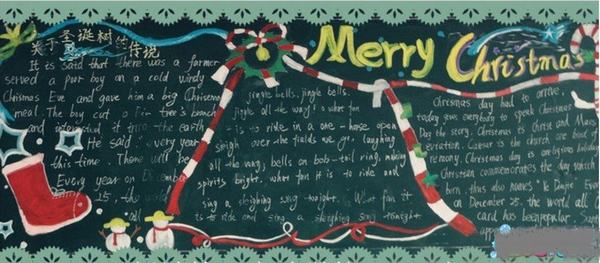 关于圣诞树的传说
It is said that there was a farmer
served a poor boy on a cold windy
Chrismas Eve and gave him a big Chrismas
meal. The boy cut a fir tree's branch
and it into the earth
He said, very year
this time. There will be
Every year on December
25, the world
Merry Christmas
jingle bells. jingle bells.
jingle all the way! what fun
is to ride in a one-horse open
sleigh over the fields we go, laughing
all the way, bells on bob-tail ring, making
spirits bright, what fun it is to ride and
sing a sleighing song tonight. What fun it
is to ride and sing a sleighing song tonight
Chrismas day had to arrive,
today gives everybody to speak Christmas
Day the story. Christmas is Christ and Mass
is the church are
Christmas day is a religious holiday
Christian commemorates the day which
born, thus also names
on December 25. the world all
card has been popular.